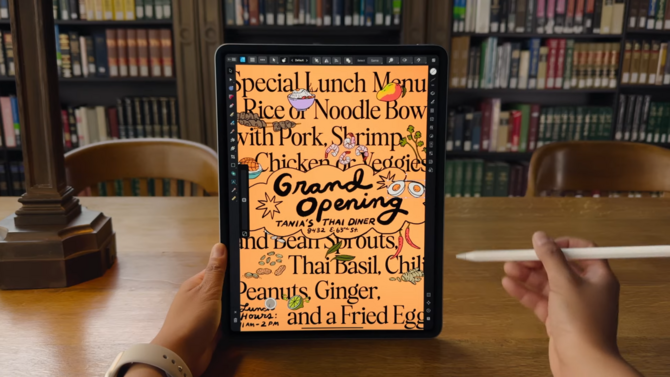 Special Lunch Menu
Rice or Noodle Bow
with Pork, Shrimp,
Chicken or Veggies
Grand
Opening
TANIA'S THAI DINER
E 65TH ST.
and Bean Sprouts,
Thai Basil, Chili
Peanuts, Ginger,
Lunch
Hours:
11AM-2PM
and a Fried Egg